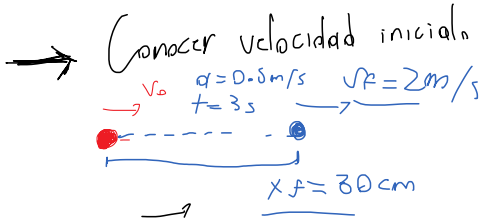 Conocer velocidad inicial.
V₀ a=0.5m/s Vf=2m/s
t=3s
xf=30cm